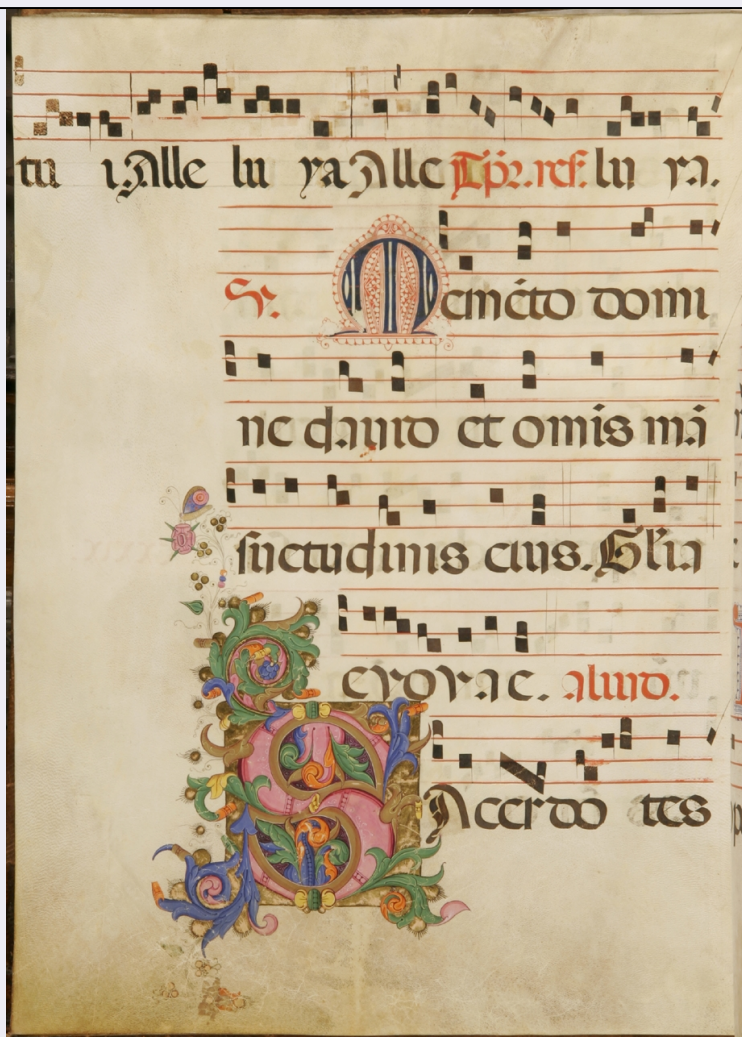 tu i. Alle lu ya Alle Tp̄r. res. lu ya.
Ps. Memēto domi
ne dauid et omīs mā
suetudinis eius. Gl'ia
e v o v a e. aliud.
SAcerdo tes